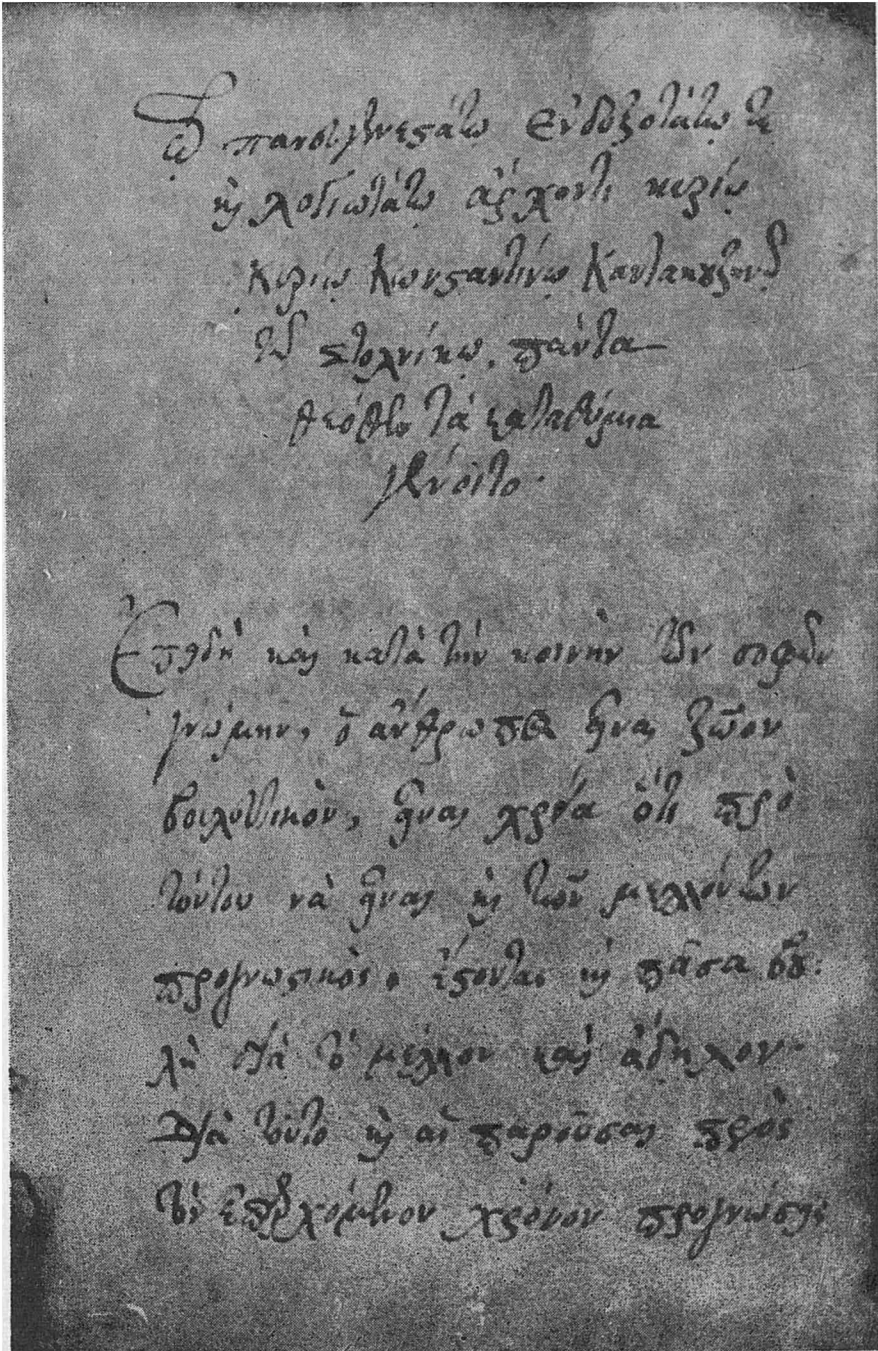 Τῷ πανευγενεστάτῳ ἐνδοξοτάτῳ τε
καὶ λογιωτάτῳ ἄρχοντι κυρίῳ
κυρίῳ Κωνσταντίνῳ Καντακουζηνῷ
τῷ στολνίκῳ, πάντα
θεόθεν τὰ καταθύμια
γένοιτο.
Ἐπειδὴ καὶ κατὰ τὴν κοινὴν τῶν σοφῶν
γνώμην, ὁ ἄνθρωπος εἶναι ζῶον
βουλευτικὸν, εἶναι χρεία ὅτι πρὸ
τούτου νὰ εἶναι καὶ τῶν μελλόντων
προγνωστικὸς. ἔστοντας καὶ πᾶσα βου-
λὴ διὰ τὸ μέλλον καὶ ἄδηλον.
Διὰ τοῦτο καὶ αἱ παροῦσαι πρὸς
τὸν ἐπερχόμενον χρόνον προγνώσεις